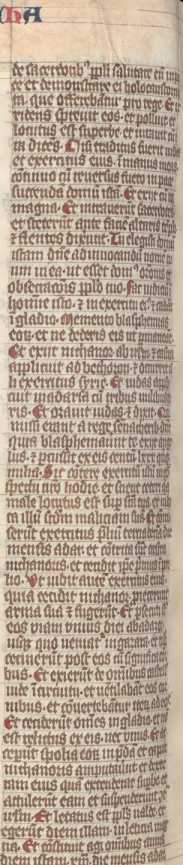 hA
de sacerdotib' ppli salutare eu in pa
ce et demonstrare ei holocautom
ta que offerebatur pro rege Et ir
ridens spreuit eos et polluit et
locutus est superbe et iurauit cu
ira dices Nisi traditus fuerit iudas
et exercitus eius i manus meas
continuo cu reuersus fuero in pace
succenda domu ista Et exiit cu ira
magna Et intrauerut sacerdotes
et steterut ante facie altaris et
et flentes dixerut Tu elegisti domu
istam dne ad inuocandu nome tuu
um in ea ut esset dom' oronis et
obsecratois pplo tuo Fac uindicta
homine isto et in exercitu ei' et cadat
i gladio Memento blasphemias
eoru et ne dederis eis ut pmaneat
Et exiit nichanor ab irlm et castra
applicuit ad bethoron et occurrit il
li exercitus syrie Et iudas appli
cuit in adarsa cu tribus milibus ui
ris Et orauit iudas et dixit Qui
missi erant a rege senacherib dne
quia blasphemauerut te exiit angel'
et percussit ex eis centu
milia Sic cotere exercitu istu in co
spectu nro hodie et sciant ceteri quia
male locutus est sup sca tua et iudi
ca illu scdm malicia illi Et comi
serut exercitus pliu terciadecia die
mensis adar et cotrita sut castra
nichanoris et cecidit ipe prim' i pre
lio Ut uidit aute exercitus eius
quia cecidit nichanor proiecerut
arma sua et fugerut Et psecuti st
eos uiam unius diei ab adazer
usq quo ueniat' in gazara et tubis
cecinerut post eos cu significatoi
bus Et exierut de omnibus castellis
iudee i circuitu et uentilabat eos cor
nibus et couertebatur iteru ad eos
Et ceciderut omes in gladio et no
est relictus ex eis nec unus Et ac
ceperut spolia eoru in pda et caput
nichanoris amputauerut et dextra
eius qua extenderat supbe et
attulerut eam et suspenderut contra
irlm Et letatus est ppls ualde et
egerut diem illam in leticia mag
na Et costituit agi omnibus annis
diem istam xiii die mensis adar